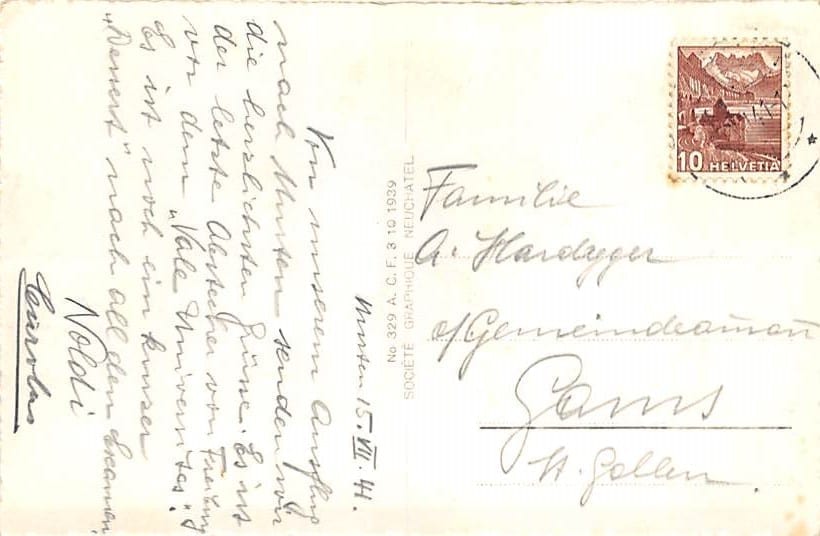 Murten 15. VII. 41.
Von unserem Ausflug
nach Murten senden wir
die herzlichsten Grüsse. Es ist
der letzte Abstecher von Freiburg
vor dem „Vale Universitas"!
Es ist noch ein kurzer
„Dessert" nach all den Examen.
Noldi
Carolus
No 329 A. C. F. 3 10 1939
SOCIÉTÉ GRAPHIQUE NEUCHATEL
10 HELVETIA
Familie
A. Hardegger
a/Gemeindeamman
Gams
St. Gallen.